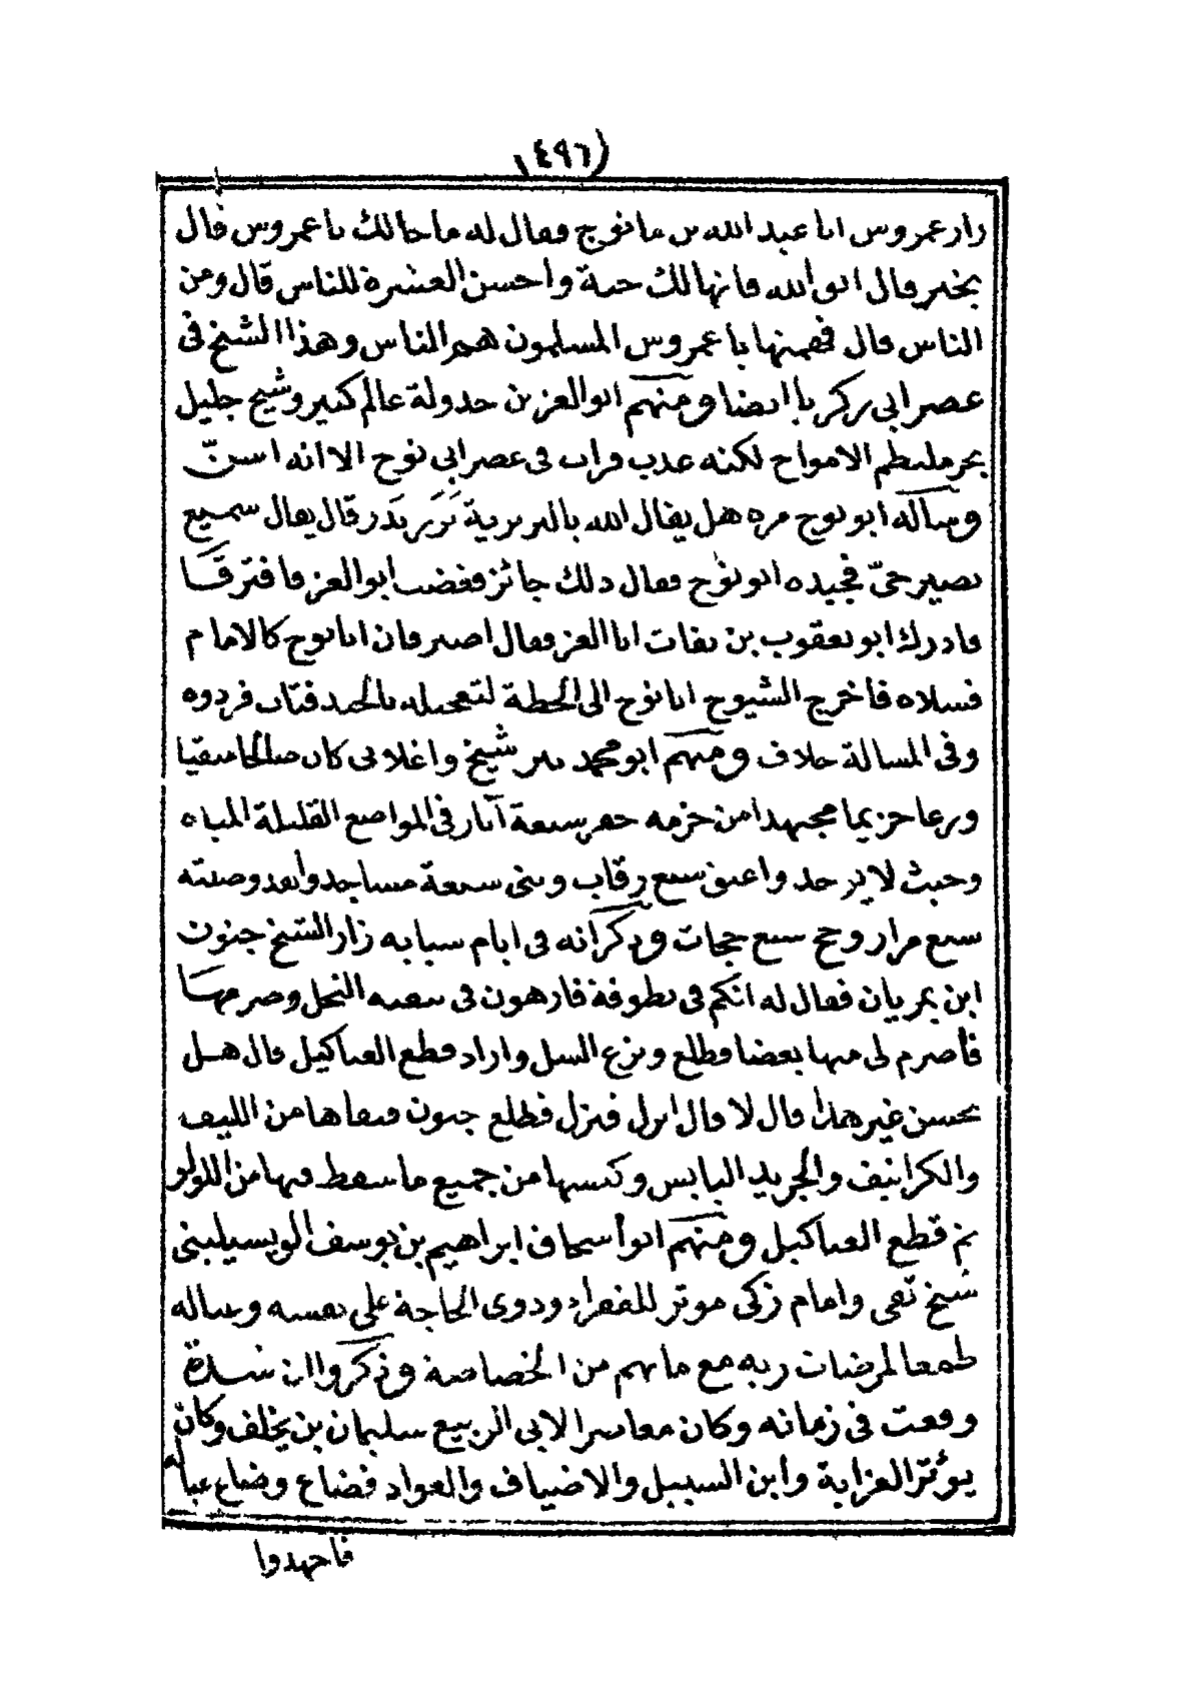 (٤٩٦)
زار عمروس ابا عبد الله بن مانوج فقال له ما حالك يا عمروس قال
بخير قال اتق الله فانها لك جنة واحسن العشرة للناس قال ومن
الناس قال فهمنها يا عمروس المسلمون هم الناس وهذا الشيخ في
عصر ابي زكريا ايضا ومنهم ابو العز بن حدولة عالم كبير وشيخ جليل
بحر ملتطم الامواج لكنه عذب فرات في عصر ابي نوح الا انه اسن
وساله ابو نوح مرة هل يقال الله بالبربرية يَرَ يدَر قال يقال سميع
بصير حيّ فجبده ابو نوح فقال ذلك جائز فغضب ابو العز فافترقا
فادرك ابو يعقوب بن نفات ابا العز فقال اصبر فان ابا نوح كالامام
فسلاه فاخرج الشيوخ ابا نوح الى الخطة لتعجيله بالجبد فتاب فردوه
وفي المسالة خلاف ومنهم ابو محمد شيخ واغلانى كان صالحا متقيا
ورعا حزيما مجتهدا من حزمه حفر سبعة آبار في المواضع القليلة المياه
وحيث لا يوجد واعتق سبع رقاب وبنى سبعة مساجد وانفد وصيته
سبع مرار وحج سبع حجات وذكر انه في ايام شبابه زار الشيخ جنون
ابن يمريان فقال له انكم في تطوفة فارهون في تنقية النخل وصرمها
فأصرم لي منها بعضا فطلع ونزع السل واراد قطع العناكيل قال هل
تحسن غير هذا قال لا قال انزل فنزل فطلع جنون فنقاها من الليف
والكرانيف والجريد اليابس وكنسها من جميع ما سقط فيها من اللولو
ثم قطع العناكيل ومنهم ابو أسحاق ابراهيم بن يوسف الويسيليني
شيخ تقي وامام زكي موثر للفقراء وذوي الحاجة على نفسه وعياله
طمعا لمرضات ربه مع ما بهم من الخصاصة وذكروا ان شدة
وقعت في زمانه وكان معاصرا لابي الربيع سليمان بن يخلف وكان
يوثر العزابة وابن السبيل والاضياف والعواد فضاع وضاع عياله
فاجهدوا